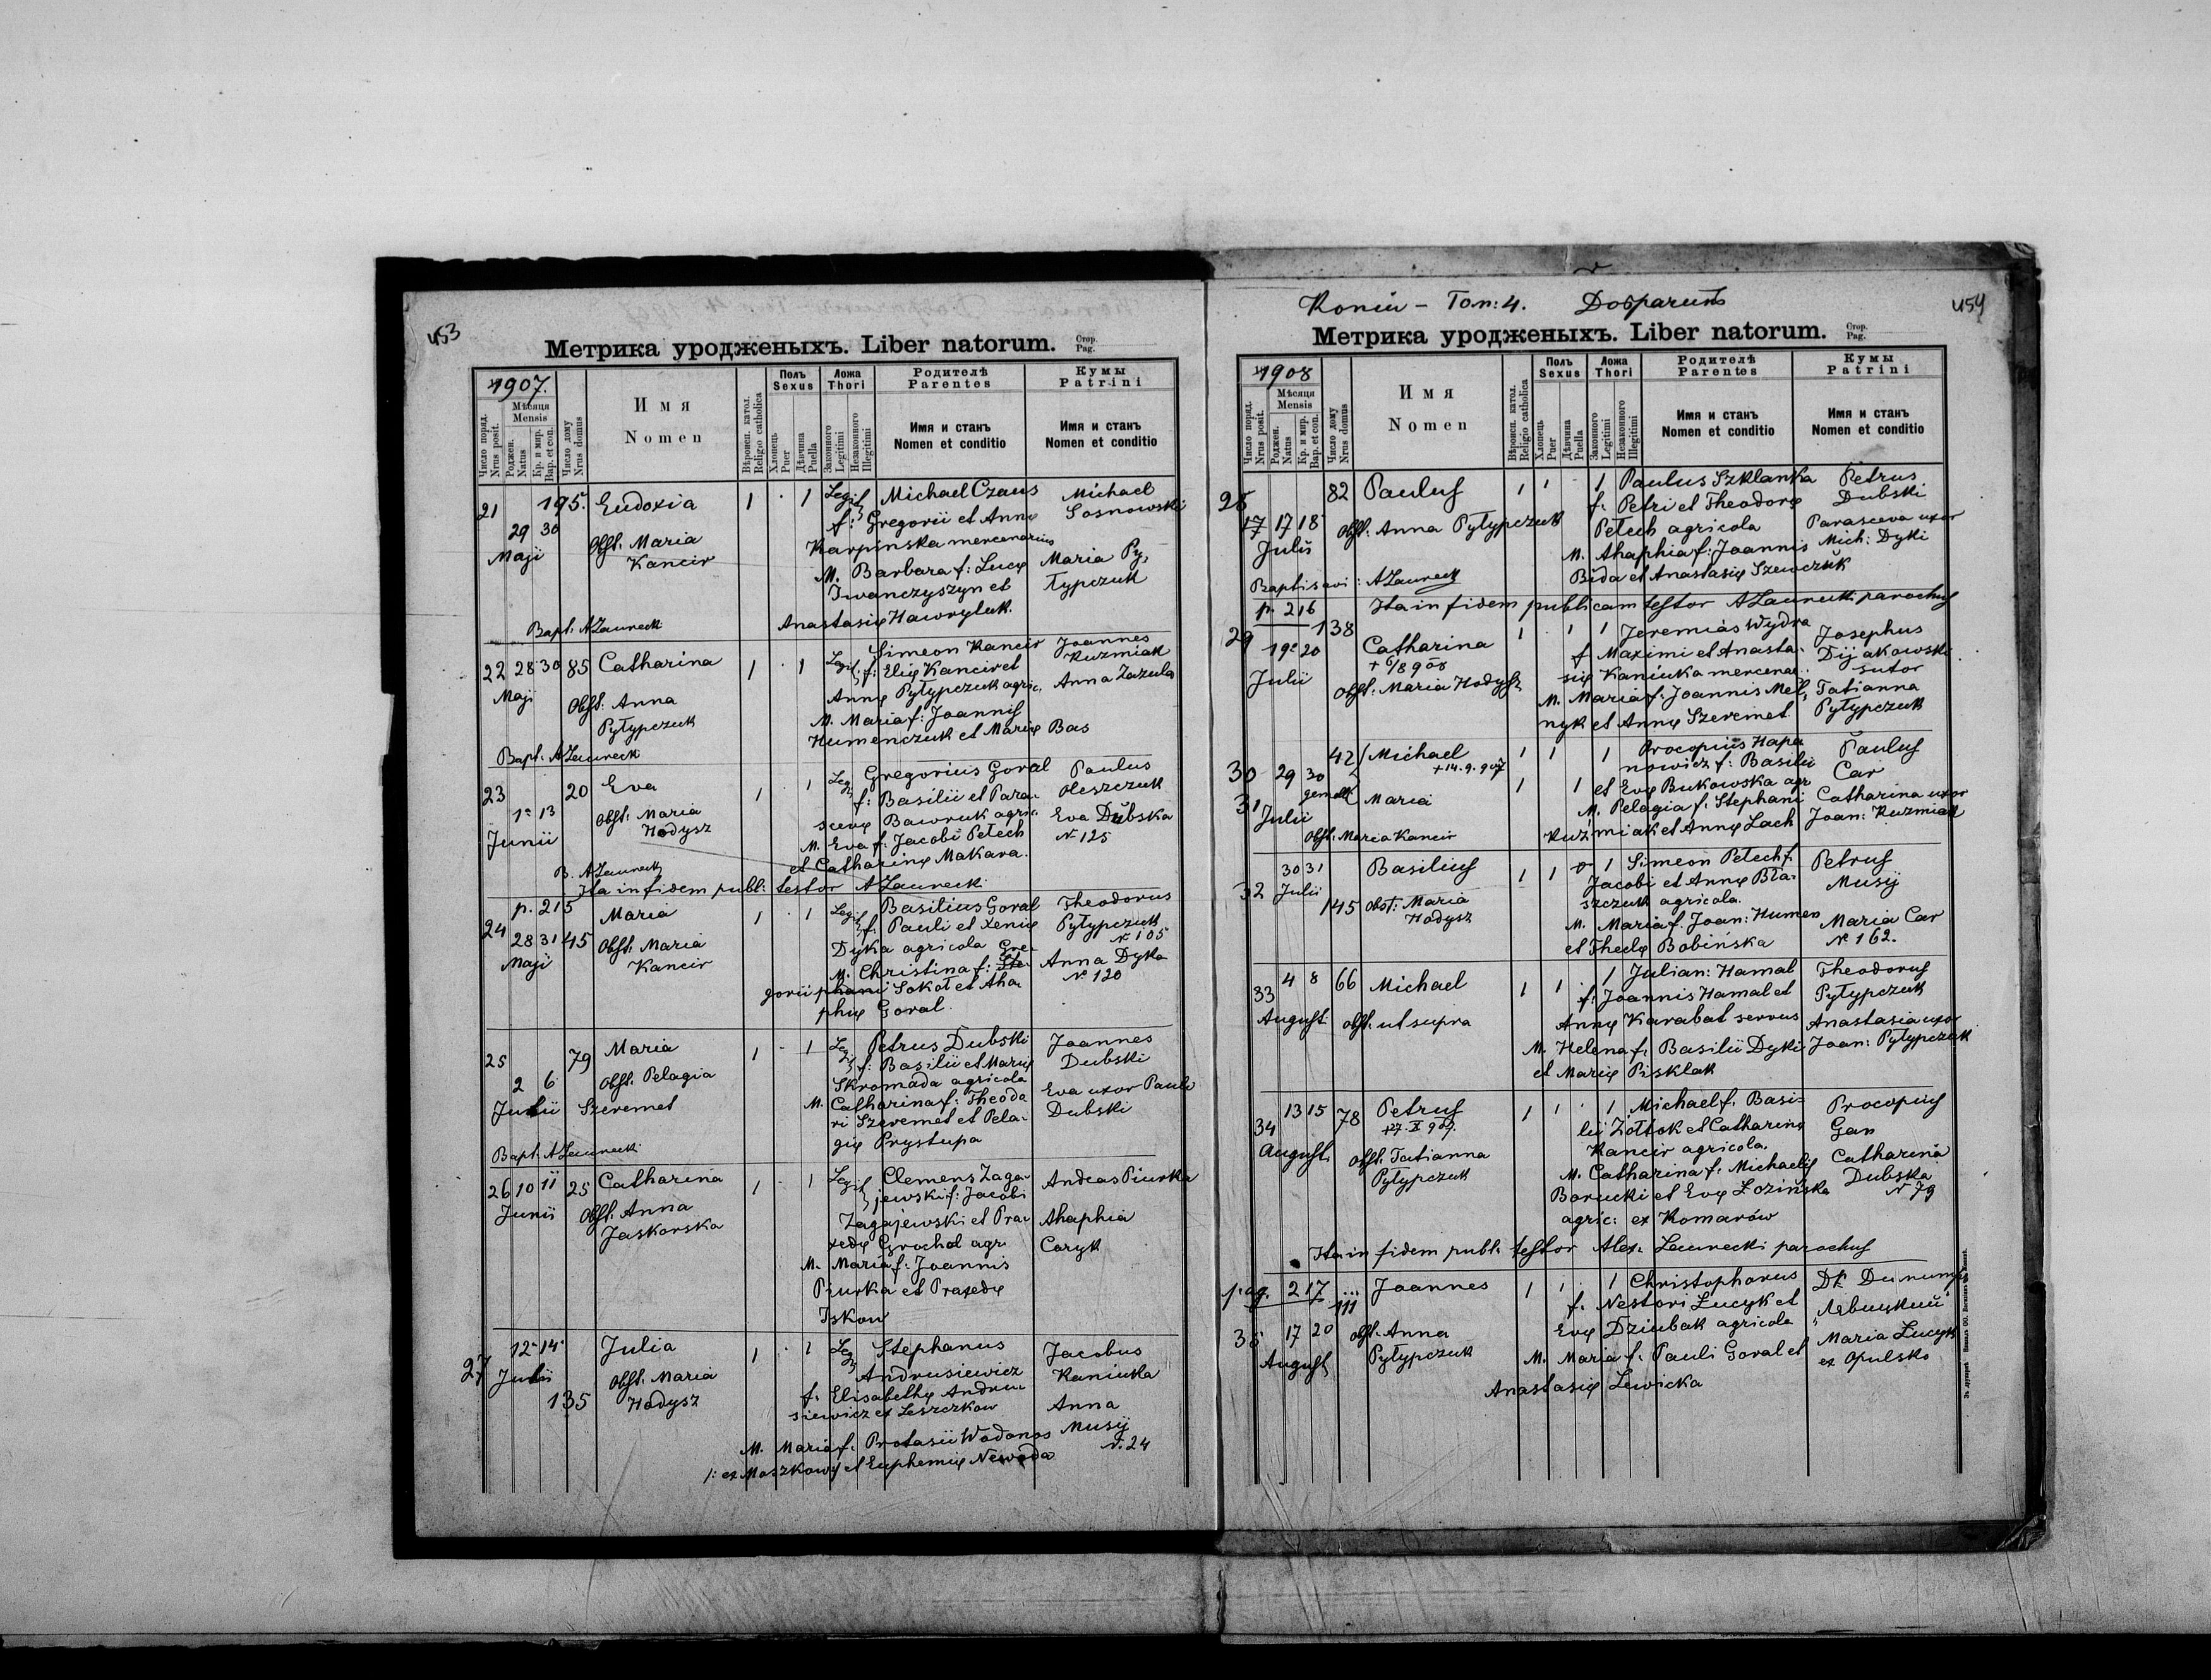 453
Метрика уродженыхъ. Liber natorum. Стор. Pag.
1907.
Число поряд. Nrus posit.
Мѣсяця Mensis
Роджен. Natus
Кр. и мир. Bap. et con.
Число дому Nrus domus
Имя Nomen
Вѣроисп. катол. Religio catholica
Полъ Sexus
Хлопець Puer
Дѣвчина Puella
Ложа Thori
Законного Legitimi
Незаконного Illegitimi
Родителѣ Parentes
Имя и станъ Nomen et conditio
Кумы Patrini
Имя и станъ Nomen et conditio
21 195. Eudoxia 1 · 1 Legit Michael Czaus Michael
29 30 f: Gregorii et Annę Sosnowski
Maji Obst. Maria Karpinska mercenarius
Kancir M. Barbara f: Lucę Maria Py,
Iwanczyszyn et typczuk
Bapt. ALaurecki Anastasię Hawryluk.
22 28 30 85 Catharina 1 · 1 Legit. Simeon Kancir Joannes
f: Elię Kancir et Kuzmiak
Maji Obst: Anna Annę Pytypczuk agric. Anna Zazula
Pytypczuk M. Maria f: Joannis
Humenczuk et Marię Bas
Bapt. ALaurecki
23 20 Eva 1 · 1 Leg Gregorius Goral Paulus
1 13 f: Basilii et Para- Oleszczuk
Obst: Maria scevę Bawruk agric. Eva Dubska
Junii Hodysz M. Eva f: Jacobi Petech N. 125
et Catharinę Makara.
B. ALaurecki
Ita in fidem publ: testor ALaurecki
p. 215
24 28 31 45 Maria 1 · 1 Legit Basilius Goral Theodorus
f. Pauli et Xenię Pytypczuk
Maji Obst. Maria Dyka agricola N. 105
Kancir M. Christina f: Ste- Gre- Anna Dyka
gorii phani Sokoł et Aha N. 120
phię Goral.
25 79 Maria 1 · 1 Leg Petrus Dubski Joannes
2 6 Obst. Pelagia f: Basilii et Marię Dubski
Julii Szeremet Skromada agricola Eva uxor Pauli
M. Catharina f: Theodo Dubski
ri Szeremet et Pela-
gię Prystupa
Bapt. ALaurecki
26 10 11 25 Catharina 1 · 1 Legit Clemens Zaga- Andeas Piurka
Junii Obst. Anna jewski f: Jacobi
Jaskorska Zagajewski et Pra- Ahaphia
xedę Grochol agr. Caryk
M. Maria f: Joannis
Piurka et Praxedę
Iskow
27 12 14 Julia 1 · 1 Leg Stephanus Jacobus
Julii Obst. Maria Andrusiewicz Kaniuka
135 Hodysz f. Elisabethę Andru Anna
siewicz ex Leszczkow Musij
M. Maria f. Protasii Wodonos N. 24
/: ex Moszkow / et Euphemię Newada
Koniu - Tom: 4. Добрачинъ
454
Метрика уродженыхъ. Liber natorum. Стор. Pag.
1908
Число поряд. Nrus posit.
Мѣсяця Mensis
Роджен. Natus
Кр. и мир. Bap. et con.
Число дому Nrus domus
Имя Nomen
Вѣроисп. катол. Religio catholica
Полъ Sexus
Хлопець Puer
Дѣвчина Puella
Ложа Thori
Законного Legitimi
Незаконного Illegitimi
Родителѣ Parentes
Имя и станъ Nomen et conditio
Кумы Patrini
Имя и станъ Nomen et conditio
28 82 Paulus 1 1 · 1 Paulus Szklanka Petrus
f. Petri et Theodorę Dubski
17 17 18 Obst: Anna Pytypczuk Petech agricola Parasceva uxor
Julii M. Ahaphia f: Joannis Mich: Dyki
Bida et Anastasię Szewczuk
Baptisavi: ALaurecki
p. 216 Ita in fidem publicam testor ALaurecki parochus
29 138 Catharina 1 · 1 1 Jeremias Wydra Josephus
19 20 + 6/8 908 f Maximi et Anasta- Dijakowski
się Kaniuka mercenar. sutor
Julii Obst: Maria Hodysz M. Maria f: Joannis Mel, Tatianna
nyk et Annę Szeremet Pytypczuk
30 29 30 42 Michael 1 1 1 Procopius Hapa Paulus
+14.9.907 nowicz f: Basilii Car
31 gemelli Maria 1 1 et Evę Bukowska agr
Julii M. Pelagia f. Stephani Catharina uxor
Obst. Maria Kancir Kuzmiak et Annę Lach Joan: Kuzmiak
32 30 31 Basilius 1 1 0 1 Simeon Petech f. Petrus
Julii Jacobi et Annę Bla- Musij
145 Obst: Maria szczuk agricola.
Hodysz M. Maria f. Joan: Humen Maria Car
et Theclę Bobińska N 162.
33 4 8 66 Michael 1 1 · 1 Julian: Hamal Theodorus
f: Joannis Hamal et Pytypczuk
August. obst. ut supra Annę Karabat servus Anastasia uxor
M. Helena f: Basilii Dyki Joan: Pytypczuk
et Marię Pisklak
34 13 15 78 Petrus 1 1 · 1 Michael f. Basi- Procopius
lii Zołtok et Catharinę Gan
August. Obst. Tatianna Kancir agricola. Catharina
Pytypczuk M. Catharina f: Michaelis Dubska
Borucki et Evę Łozińska N 79
agric: ex Komarów
Ita in fidem publ. testor Alex. Laurecki parochus
pag. 217 111 Joannes 1 1 · 1 Christophorus
f. Nestori Łucyk et
35 17 20 obst. Anna Evę Dziubak agricola Maria Łucyk
August Pytypczuk M. Maria f. Pauli Goral et ex Opulsko
Anastasię Lewicka